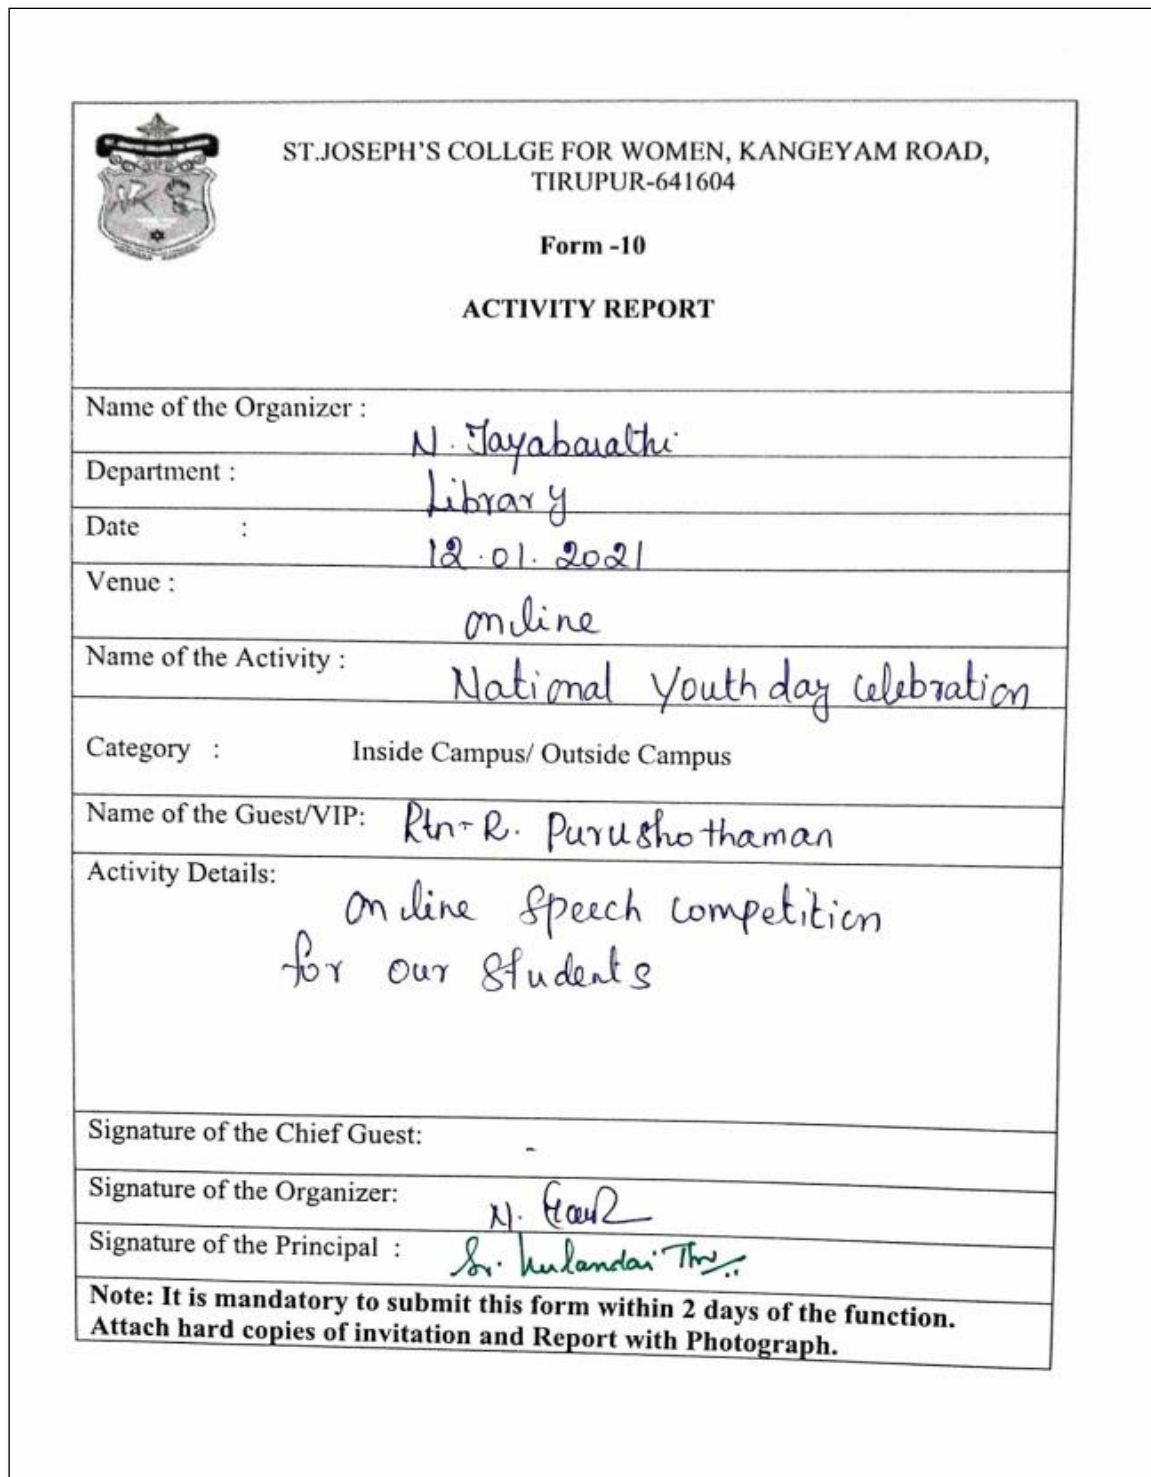 ST.JOSEPH'S COLLGE FOR WOMEN, KANGEYAM ROAD,
TIRUPUR-641604
Form -10
ACTIVITY REPORT
Name of the Organizer :
N. Jayabarathi
Department :
Library
Date :
12.01.2021
Venue :
online
Name of the Activity :
National Youth day celebration
Category : Inside Campus/ Outside Campus
Name of the Guest/VIP: Rtn-R. Purushothaman
Activity Details:
online Speech competition
for our Students
Signature of the Chief Guest: -
Signature of the Organizer:
N.
Signature of the Principal :
Sr. Kulandai
Note: It is mandatory to submit this form within 2 days of the function.
Attach hard copies of invitation and Report with Photograph.